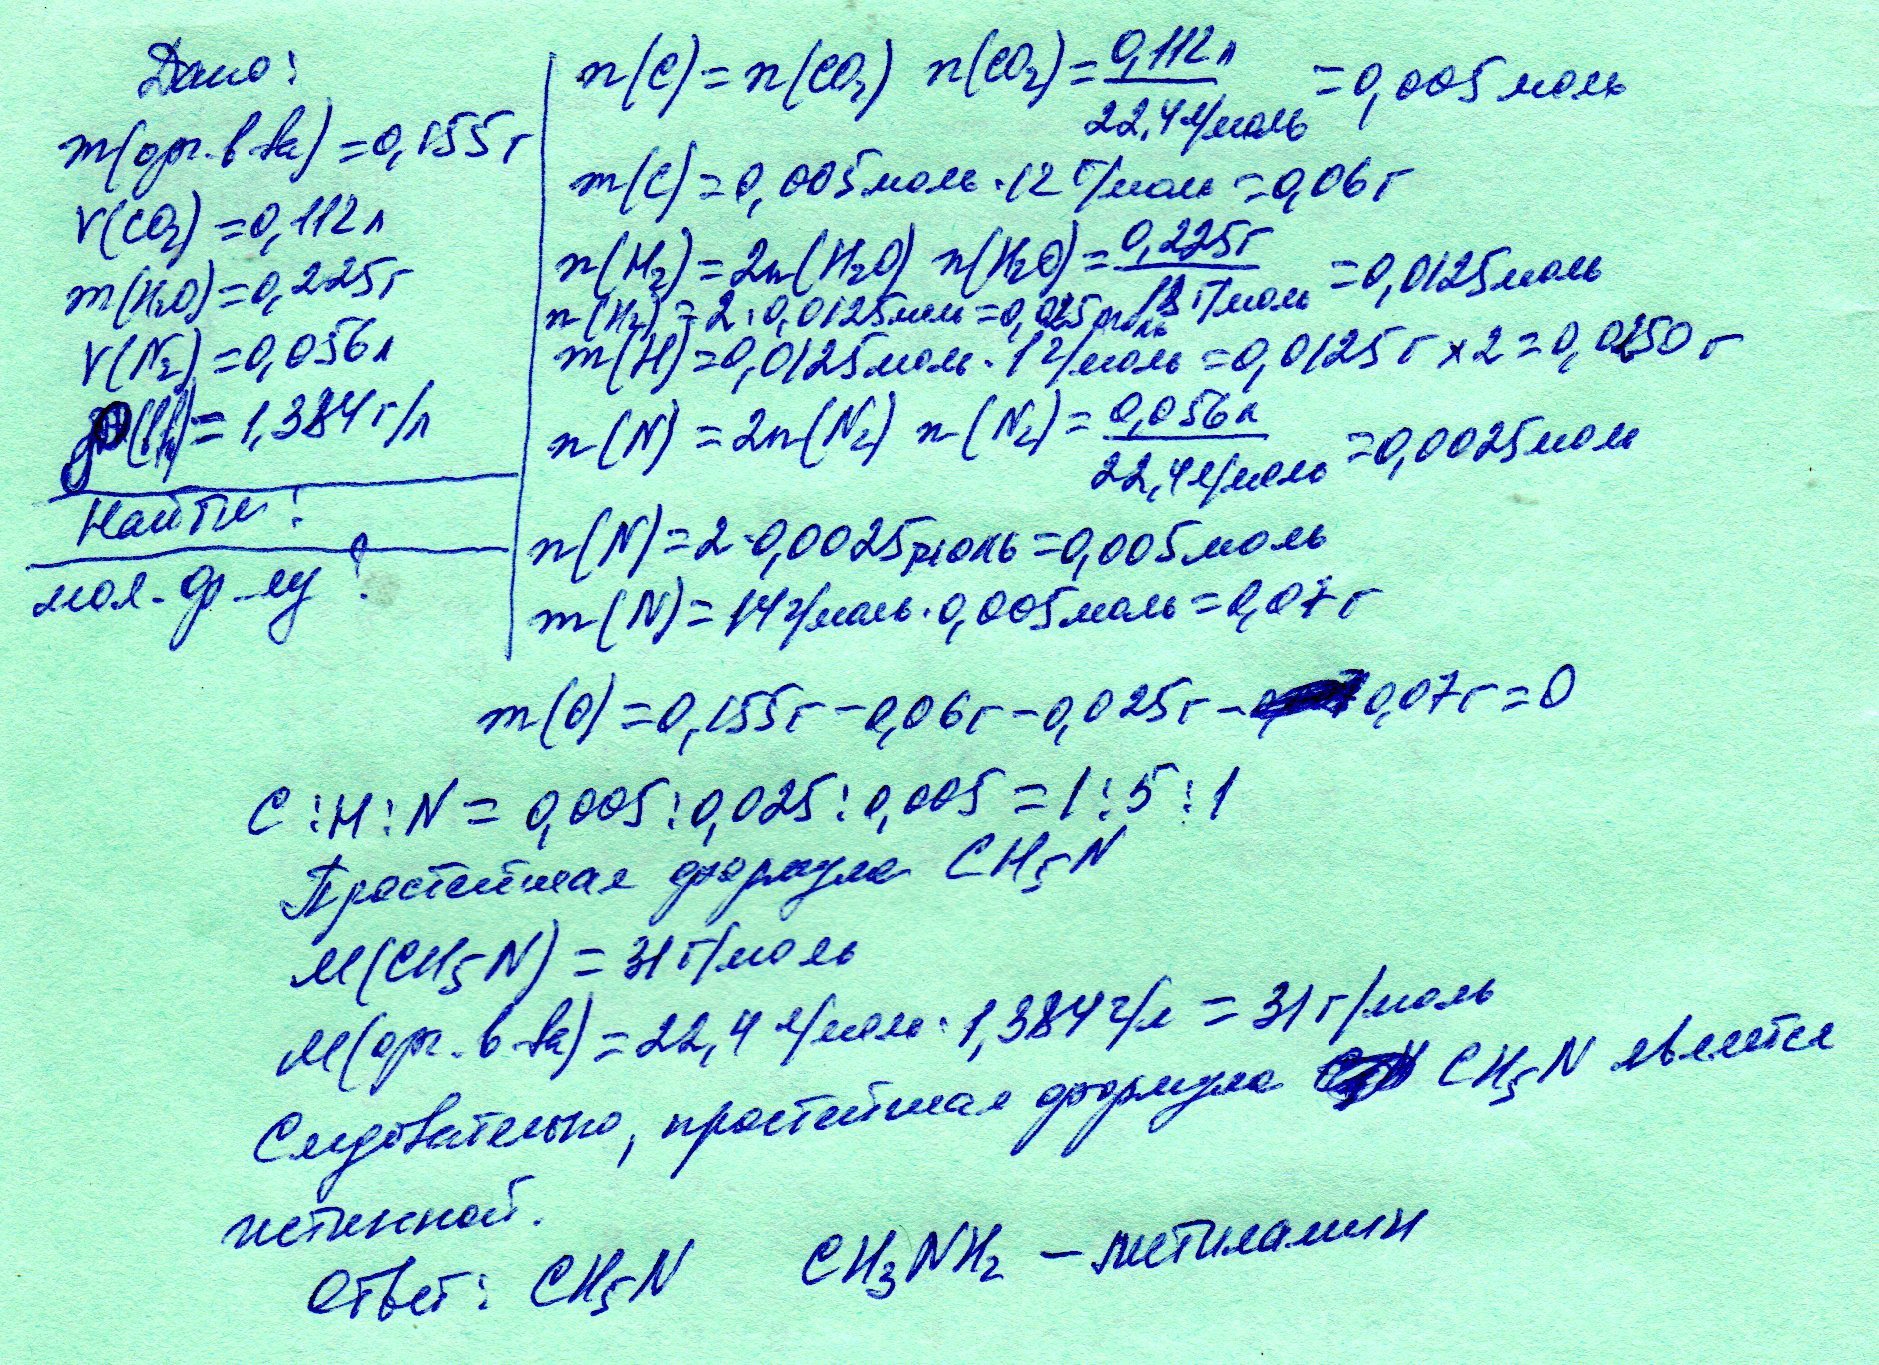 Дано:
m(орг. в-ва) = 0,155 г
V(CO2) = 0,112 л
m(H2O) = 0,225 г
V(N2) = 0,056 л
= 1,384 г/л
Найти:
мол. ф-лу?
n(C) = n(CO2) n(CO2) = 0,112 л / 22,4 л/моль = 0,005 моль
m(C) = 0,005 моль · 12 г/моль = 0,06 г
n(H2) = 2n(H2O) n(H2O) = 0,225 г / 18 г/моль = 0,0125 моль
n(H2) = 2 · 0,0125 моль = 0,025 моль
m(H) = 0,0125 моль · 1 г/моль = 0,0125 г × 2 = 0,0250 г
n(N) = 2n(N2) n(N2) = 0,056 л / 22,4 л/моль = 0,0025 моль
n(N) = 2 · 0,0025 моль = 0,005 моль
m(N) = 14 г/моль · 0,005 моль = 0,07 г
m(O) = 0,155 г - 0,06 г - 0,025 г - 0,07 г = 0
C : H : N = 0,005 : 0,025 : 0,005 = 1 : 5 : 1
Простейшая формула CH5N
M(CH5N) = 31 г/моль
M(орг. в-ва) = 22,4 л/моль · 1,384 г/л = 31 г/моль
Следовательно, простейшая формула CH5N является
истинной.
Ответ: CH5N CH3NH2 – метиламин